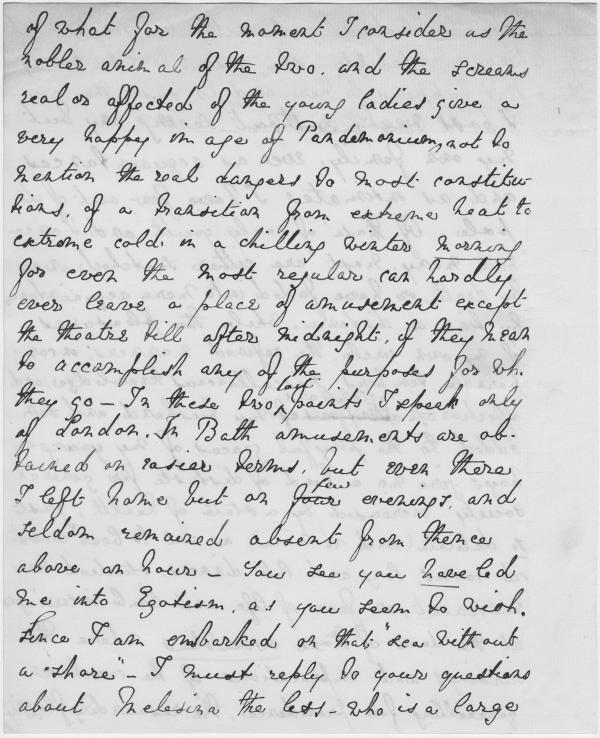 of what for the moment I consider as the
nobler animal of the two. and the screams
real or affected of the young ladies give a
very happy image of Pandemonium, not to
mention the real dangers to most constitu-
tions, of a transition from extreme heat to
extreme cold in a chilling winter morning
for even the most regular can hardly
ever leave a place of amusement except
the theatre till after midnight, if they mean
to accomplish any of the purposes for wh.
they go – In these two last points I speak only
of London. In Bath amusements are ob-
tained on easier terms, but even there
I left home but on four few evenings, and
seldom remained absent from thence
above an hour – You see you have led
me into Egotism, as you seem to wish.
Since I am embarked on that "sea without
a shore" – I must reply to your questions
about Melesina the less – who is a large